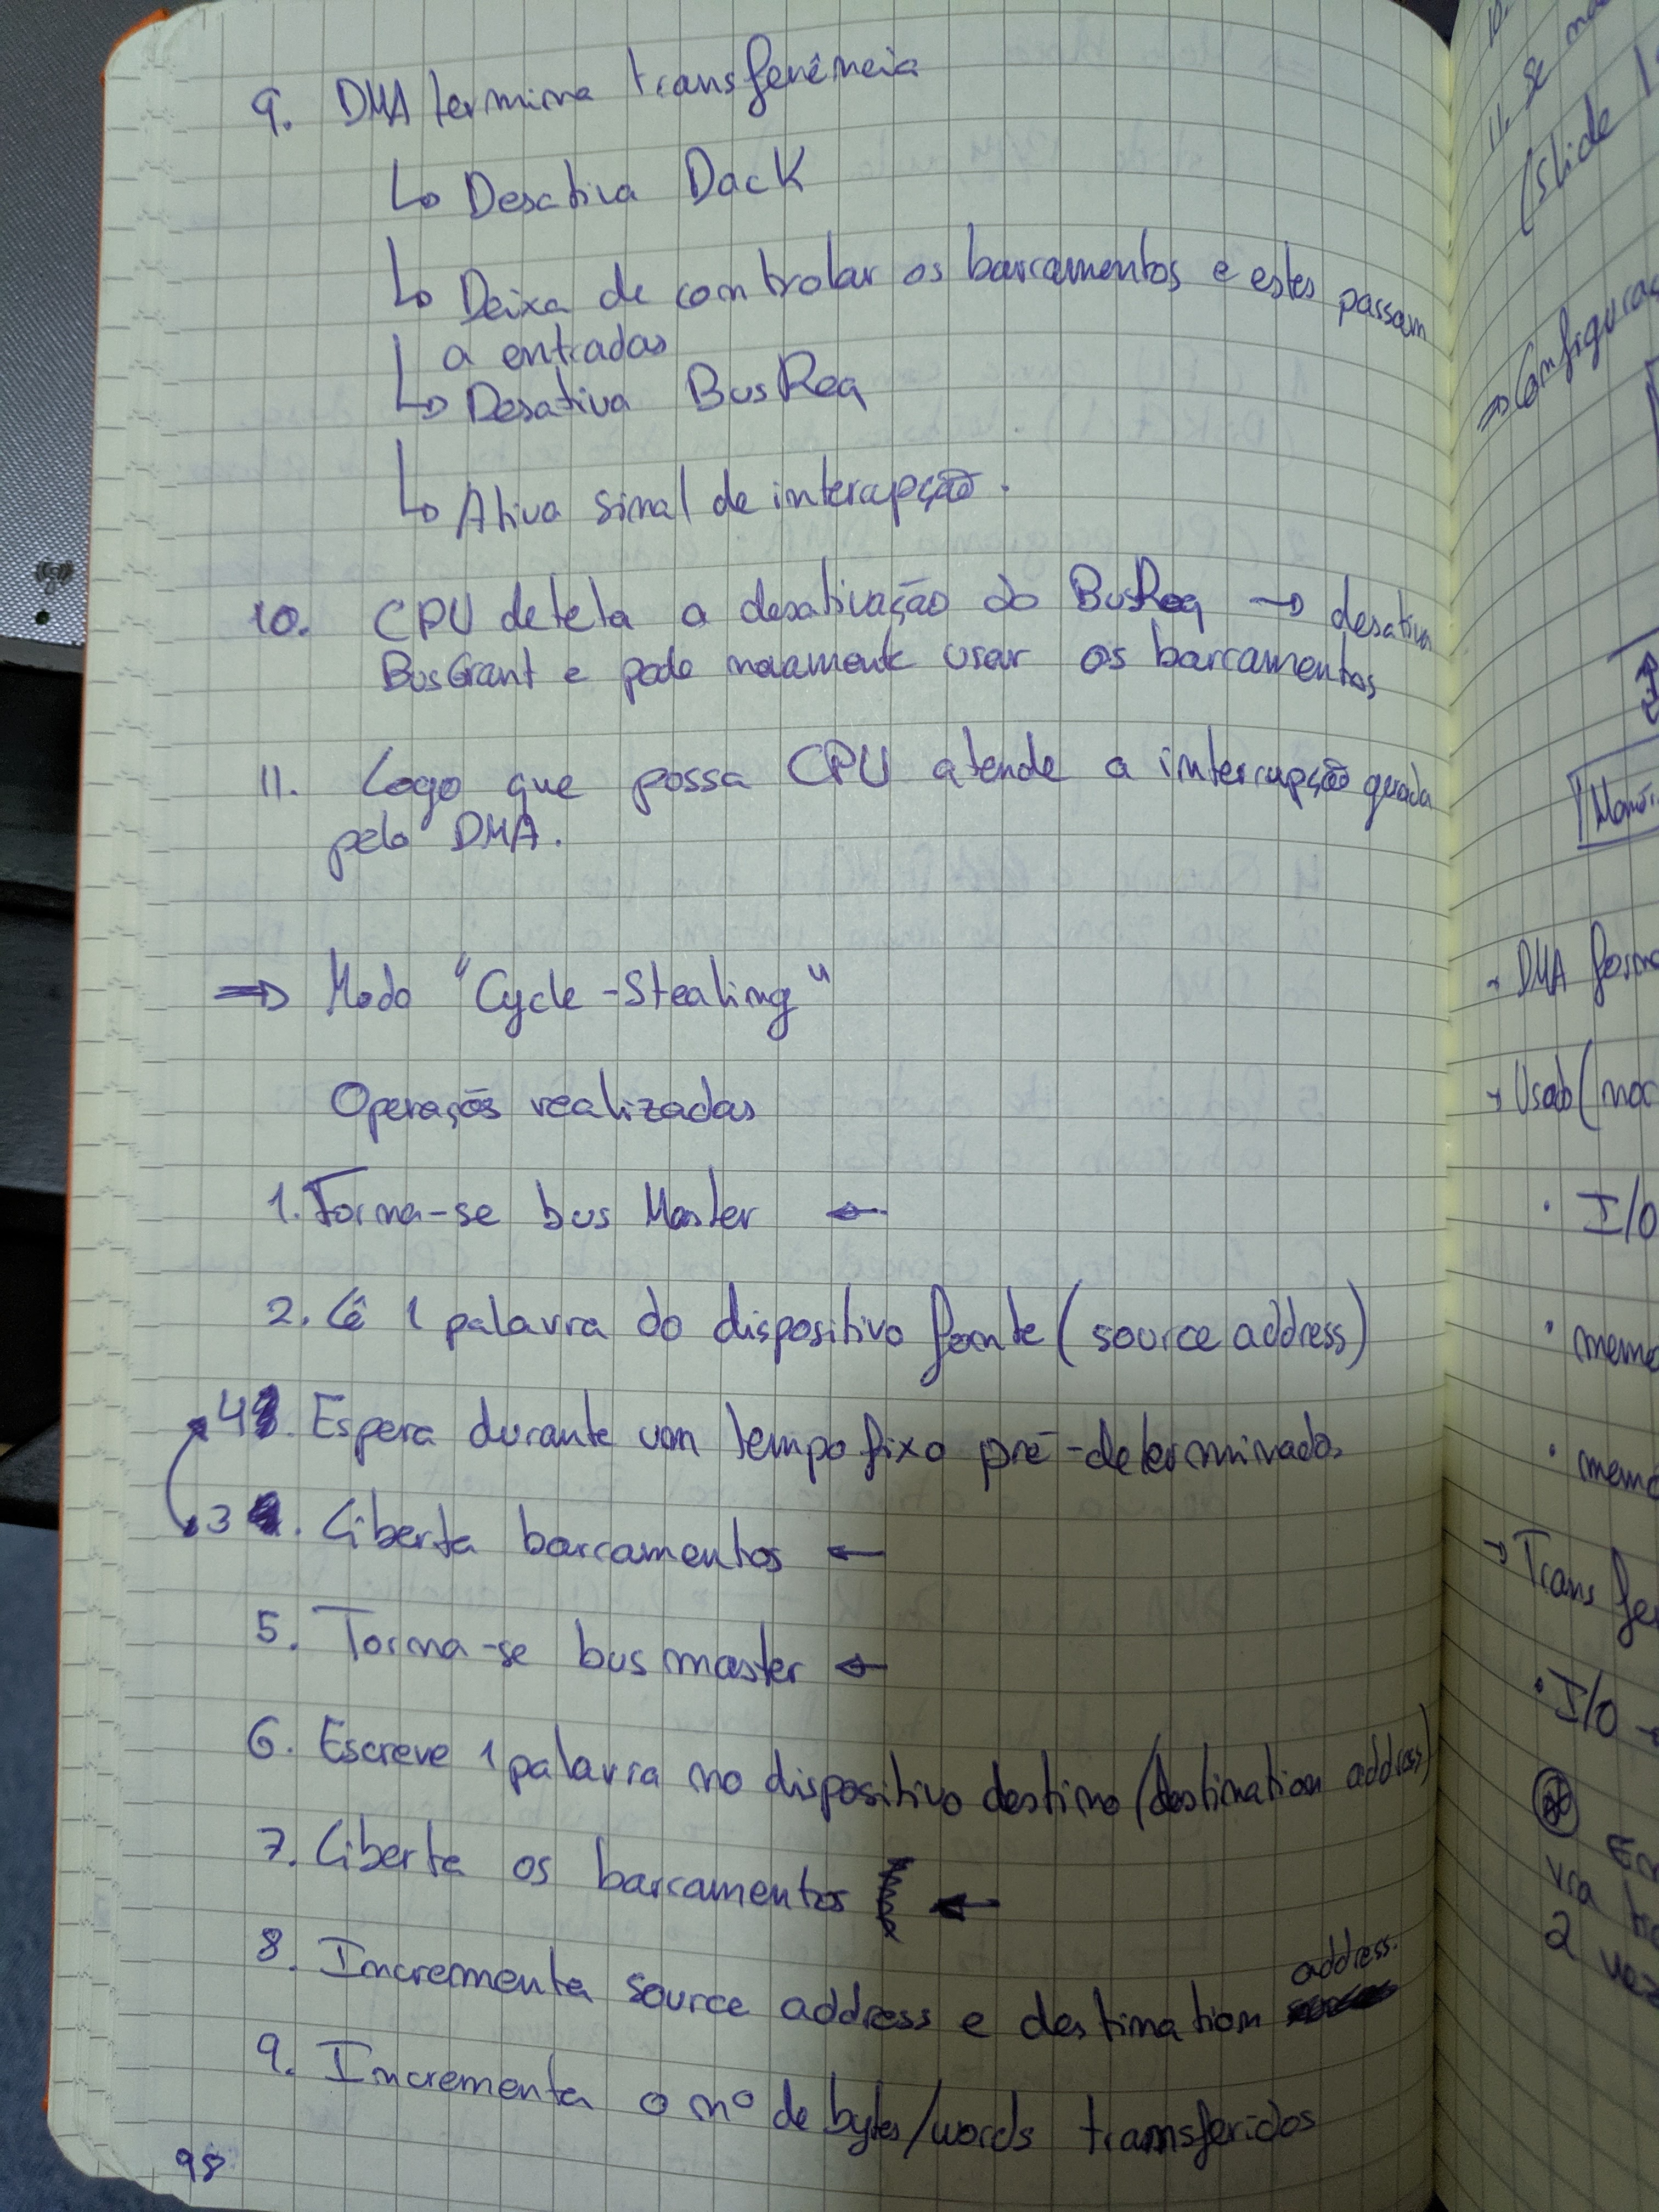 9. DMA termina transferência
↳ Desativa DacK
↳ Deixa de controlar os barramentos e estes passam
a entradas
↳ Desativa BusReq
↳ Ativa sinal de interrupção.
10. CPU deteta a desativação do BusReq → desativa
BusGrant e pode novamente usar os barramentos
11. Logo que possa CPU atende a interrupção gerada
pelo DMA.
⇒ Modo "Cycle-Stealing"
Operações realizadas
1. Torna-se bus Master ←
2. Lê 1 palavra do dispositivo fonte (source address)
4. Espera durante um tempo fixo pré-determinado
3. Liberta barramentos ←
5. Torna-se bus master ←
6. Escreve 1 palavra no dispositivo destino (destination address)
7. Liberta os barramentos ←
8. Incrementa source address e destination address.
9. Incrementa o nº de bytes/words transferidos
98
11. Se
(slide
→ DMA
→ Usado (
• I/O
• I/O →
2